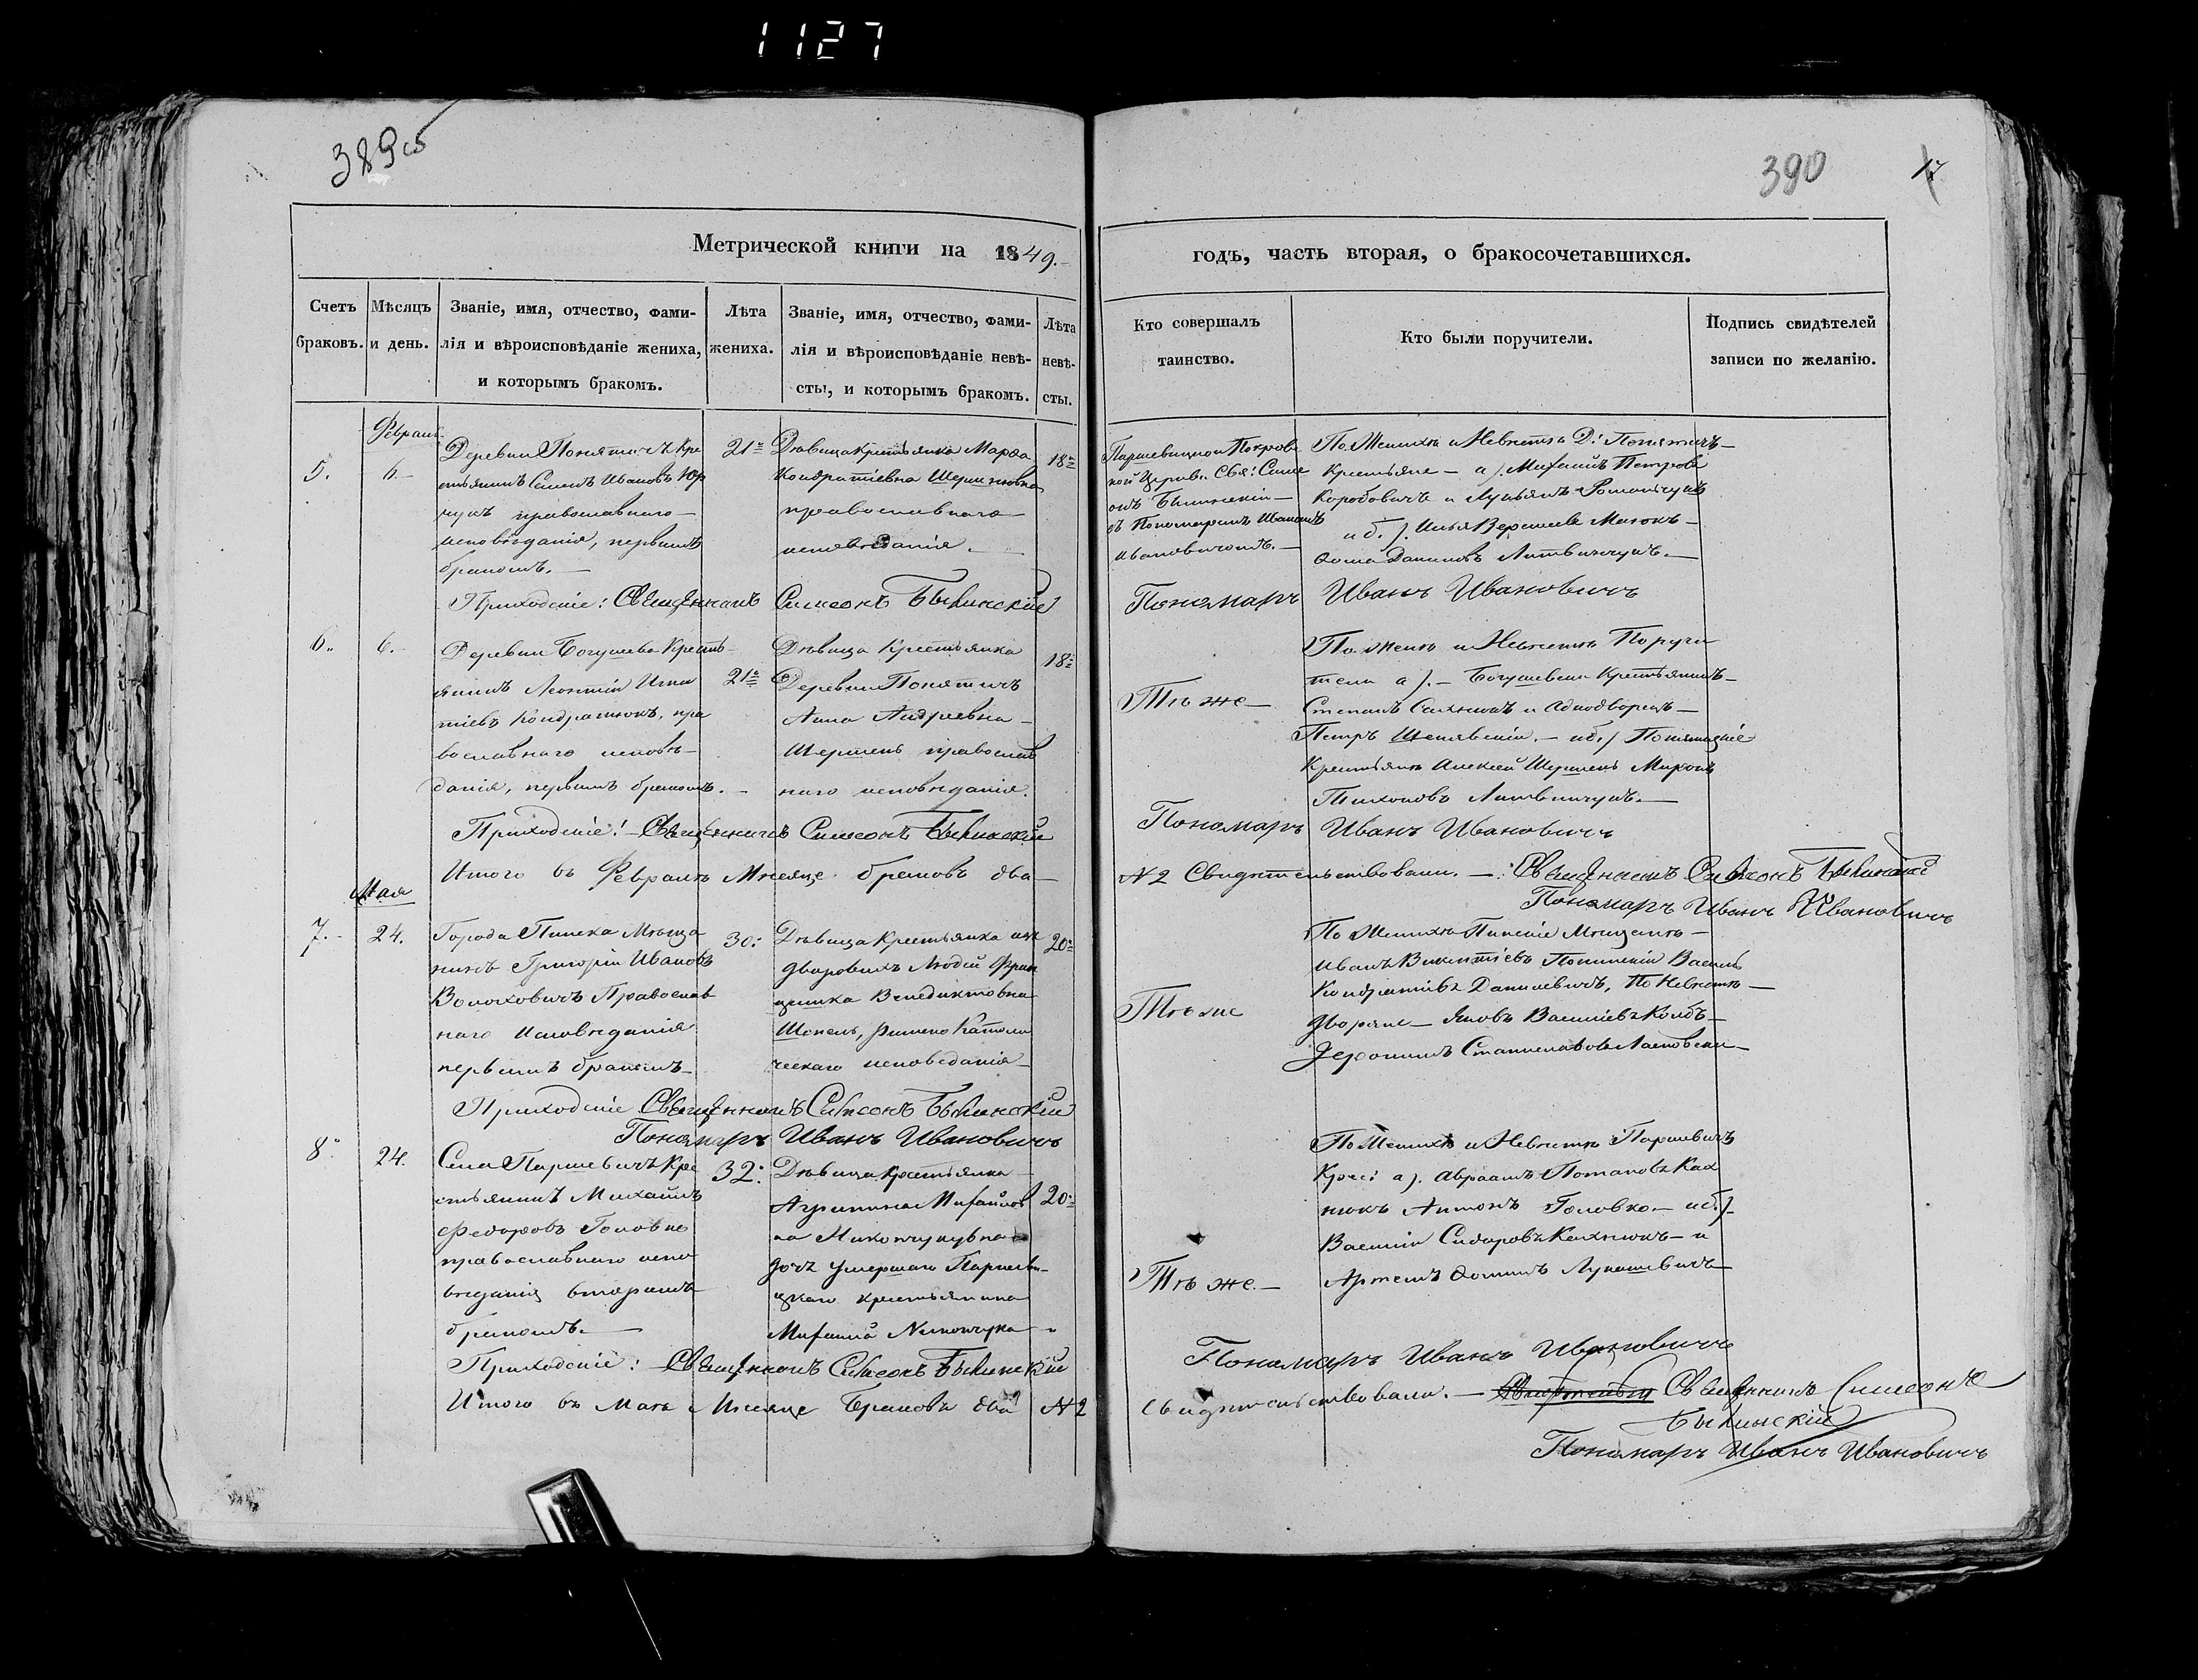 1127
389об
390
17
Метрической книги на 1849.
годъ, часть вторая, о бракосочетавшихся.
Счетъ браковъ.
Мѣсяцъ и день.
Званіе, имя, отчество, фами-
лія и вѣроисповѣданіе жениха,
и которымъ бракомъ.
Лѣта
жениха.
Званіе, имя, отчество, фами-
лія и вѣроисповѣданіе невѣ-
сты, и которымъ бракомъ.
Лѣта
невѣ-
сты.
Кто совершалъ
таинство.
Кто были поручители.
Подпись свидѣтелей
записи по желанію.
5.
6.
Деревни Понятичъ Кре
стьянинъ Семенъ Ивановъ
православнаго
исповѣданія, первымъ
бракомъ.
21
Дѣвица крестьянка Марѳа
Кондратіевна
православнаго
исповѣданія.
18
Паршевицкой Покров
кой Церкви Свя: Симе
онъ
съ Пономаремъ Иваномъ
Ивановичомъ.
По Женихѣ и Невѣстѣ Д: Понятичъ
Крестьяне а). Михаилъ Петровъ
Коробовичъ и Лукьянъ Романчукъ
и б). Илья
Ѳома Даниловъ Литвинчукъ.
Приходскіе: Священникъ Симеонъ
Пономарь Иванъ Ивановичъ
6.
6.
Деревни Богушева Кресть
янинъ Леонтій Игна
тіевъ Кондратюкъ, пра
вославнаго исповѣ
данія, первымъ бракомъ.
21
Дѣвица Крестьянка
Деревни Понятичъ
Анна Андреевна
Шершень православ
наго исповѣданія.
18
Тѣ же
По жених и Невѣстѣ Поручи
тели а). Богушевскій Крестьянинъ
Степанъ и Однодворецъ
Петръ и б.) Понятицкіе
Крестьяне Алексей Шершень Миронъ
Тихоновъ Литвинчукъ.
Приходскіе: Священникъ Симеонъ
Пономарь Иванъ Ивановичъ
Итого въ Февралѣ Мѣсяце браковъ два
№2 Свидѣтельствовали. Священникъ Симеонъ
Пономарь Иванъ Ивановичъ
Мая
7.
24.
Города Пинска Мѣща
нинъ Григорій Ивановъ
Волоховичъ Православ
наго Исповѣданія
первымъ бракомъ
30:
Дѣвица Крестьянка изъ
дворовыхъ Людей Фран
цишка Венедиктовна
Шопель, Римско Католи
ческаго исповеданія
20
Тѣ же
По Женихѣ Пинскіе Мѣщане
Иванъ Викентіевъ Василь
Кондратіевъ Данилевичъ, По Невѣстѣ
дворяне Яковъ Василіевъ
Іеронимъ Станиславовъ
Приходскіе Священникъ Симеонъ
Пономарь Иванъ Ивановичъ
8
24.
Села Паршевичъ Кре
стьянинъ Михаилъ
Федоровъ Головко
православнаго испо
вѣданія вторымъ
бракомъ.
32:
Дѣвица Крестьянка
Агрипина Михайлов
на
дочь умершаго Паршеви
цкаго крестьянина
Михаила
20
Тѣ же.
По Женихѣ и Невѣстѣ Паршевичъ
Крес: а). Авраамъ Потаповъ
Антонъ Головко. и б).
Василій Сидоровъ и
Артемъ Ѳоминъ Лукашевичъ
Приходскіе: Священникъ Симеонъ
Пономарь Иванъ Ивановичъ
Итого въ Маѣ Мѣсяце Браковъ два №2
Свидѣтельствовали. Священникъ Симеонъ
Пономарь Иванъ Ивановичъ